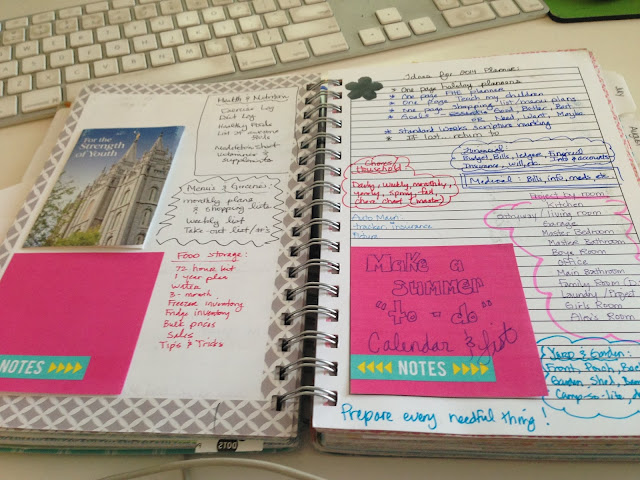 For the
Strength
of Youth
Health & Nutrition
Exercise Log
Diet Log
Healthy
List of
& Supplements
Menu's & Groceries:
monthly plans
& Shopping lists
weekly list
Take-out list
Food Storage:
72 hour kit
1 year plan
Water
3-month
Freezer inventory
Fridge inventory
Bulk prices
Sales
Tips & Tricks
NOTES
DOTS
Ideas for 2014 Planner:
* One page holiday planners
* One page FHE planner
* One page Teach my children
* One page Shopping list/menu plans
* Goals Good, Better, Best
or Need, Want, Maybe
* Standard Works Scripture marking
* If lost... return to
Chores
Household
Daily, weekly, monthly,
yearly, spring, fall,
chore chart (master)
Financial
Budget, Bills, ledger, financial
Insurance, will, etc. Info & accounts
Medical: Bills, info, meds, etc.
Auto Main.
tracker, insurance
future
Project by room
Kitchen
entryway/living room
Garage
Master Bedroom
Master Bathroom
Boys Room
Office
Main Bathroom
Family Room
Laundry/Project
Girls Room
Room
Make a
Summer
"to-do"
Calendar & list
NOTES
Yard & Garden:
Front, Porch, Back
Garden, Shed,
Prepare every needful thing!